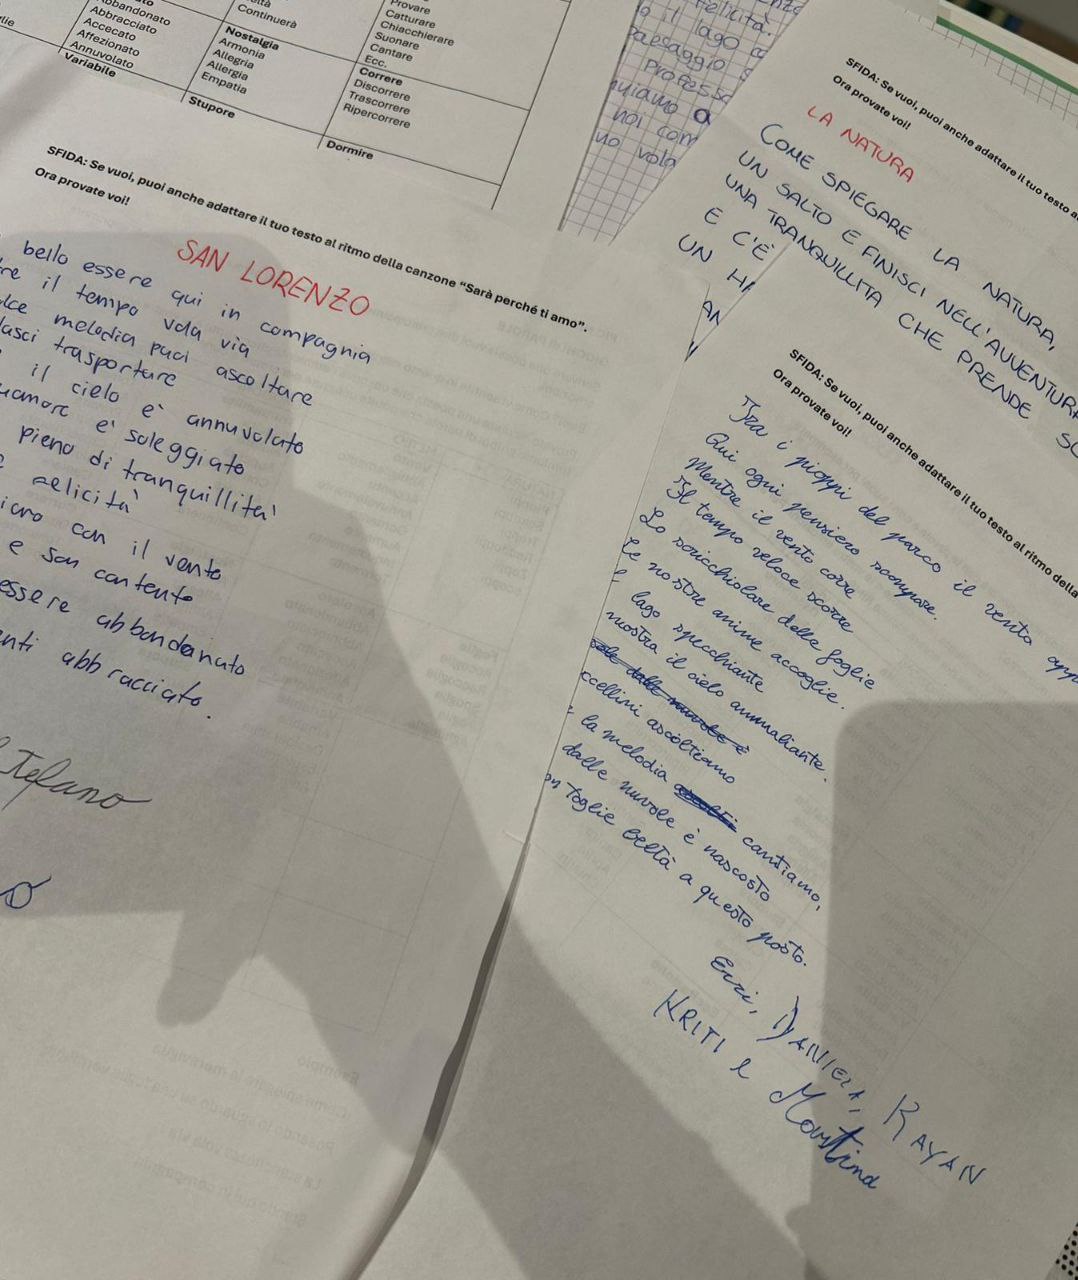 Abbandonato
Abbracciato
Accecato
Affezionato
Annuvolato
Variabile
Continuerà
Nostalgia
Armonia
Allegria
Allergia
Empatia
Stupore
Provare
Catturare
Chiacchierare
Suonare
Cantare
Ecc.
Correre
Discorrere
Trascorrere
Ripercorrere
Dormire
felicità.
il lago
paesaggio
noi com
SFIDA: Se vuoi, puoi anche adattare il tuo testo al ritmo della canzone “Sarà perché ti amo”.
Ora provate voi!
SAN LORENZO
bello essere qui in compagnia
il tempo vola via
melodia puoi ascoltare
lasci trasportare
il cielo è annuvolato
è soleggiato
pieno di tranquillità
felicità
con il vento
e son contento
essere abbandonato
abbracciato.
Stefano
SFIDA: Se vuoi, puoi anche adattare il tuo testo a
Ora provate voi!
LA NATURA
COME SPIEGARE LA NATURA,
UN SALTO E FINISCI NELL'AVVENTURA
UNA TRANQUILLITÀ CHE PRENDE
E C'È
UN
SFIDA: Se vuoi, puoi anche adattare il tuo testo al ritmo della
Ora provate voi!
Tra i pioppi del parco il vento app
Qui ogni pensiero scompare.
Mentre il vento corre
Il tempo veloce scorre
Lo scricchiolare delle foglie
Le nostre anime accoglie.
lago specchiante
mostra il cielo ammaliante.
ccellini ascoltiamo
la melodia cantiamo,
dalle nuvole è nascosto
on toglie beltà a questo posto.
Erri, DANIELA, RAYAN
KRITI e